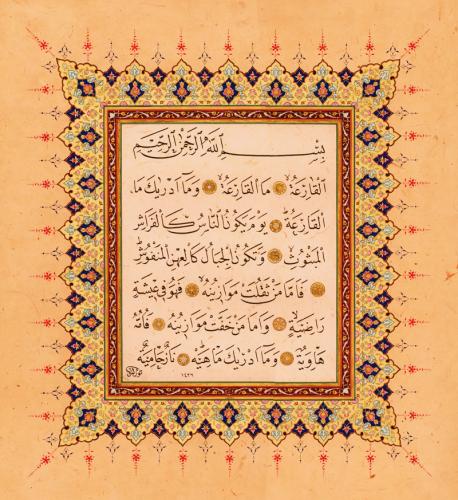 بِسْمِ اللَّهِ الرَّحْمَٰنِ الرَّحِيمِ
اَلْقَارِعَةُ مَا الْقَارِعَةُ وَمَا اَدْرٰيكَ مَا
الْقَارِعَةُ يَوْمَ يَكُونُ النَّاسُ كَالْفَرَاشِ
الْمَبْثُوثِ وَتَكُونُ الْجِبَالُ كَالْعِهْنِ الْمَنْفُوشِ
فَاَمَّا مَنْ ثَقُلَتْ مَوَازِينُهُ فَهُوَ فِى عِيشَةٍ
رَاضِيَةٍ وَاَمَّا مَنْ خَفَّتْ مَوَازِينُهُ فَاُمُّهُ
هَاوِيَةٌ وَمَا اَدْرٰيكَ مَاهِيَهْ نَارٌ حَامِيَةٌ
١٤٢٦